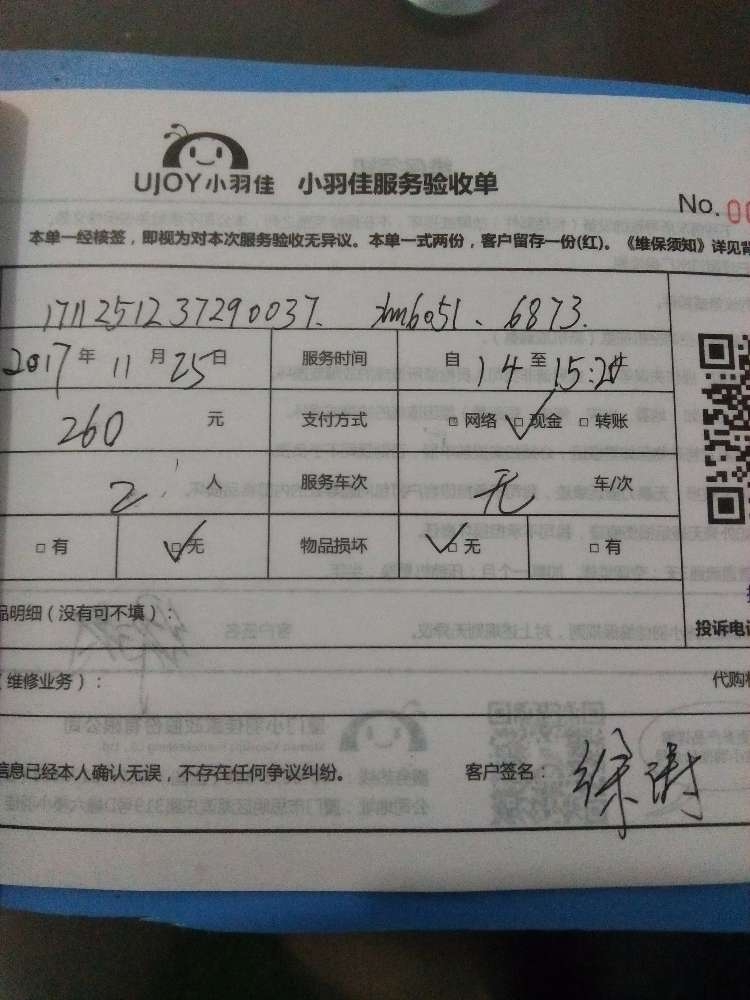 UJOY小羽佳 小羽佳服务验收单
No. 00
本单一经核签，即视为对本次服务验收无异议。本单一式两份，客户留存一份(红)。《维保须知》详见背
1711251237290037. xmb051. 6873.
2017 年 11 月 25 日 服务时间 自 14 至 15:20
260 元 支付方式 □ 网络 □ 现金 □ 转账
2 人 服务车次 无 车/次
□ 有 □ 无 物品损坏 □ 无 □ 有
品明细（没有可不填）：
投诉电话
（维修业务）： 代购
信息已经本人确认无误，不存在任何争议纠纷。 客户签名：徐